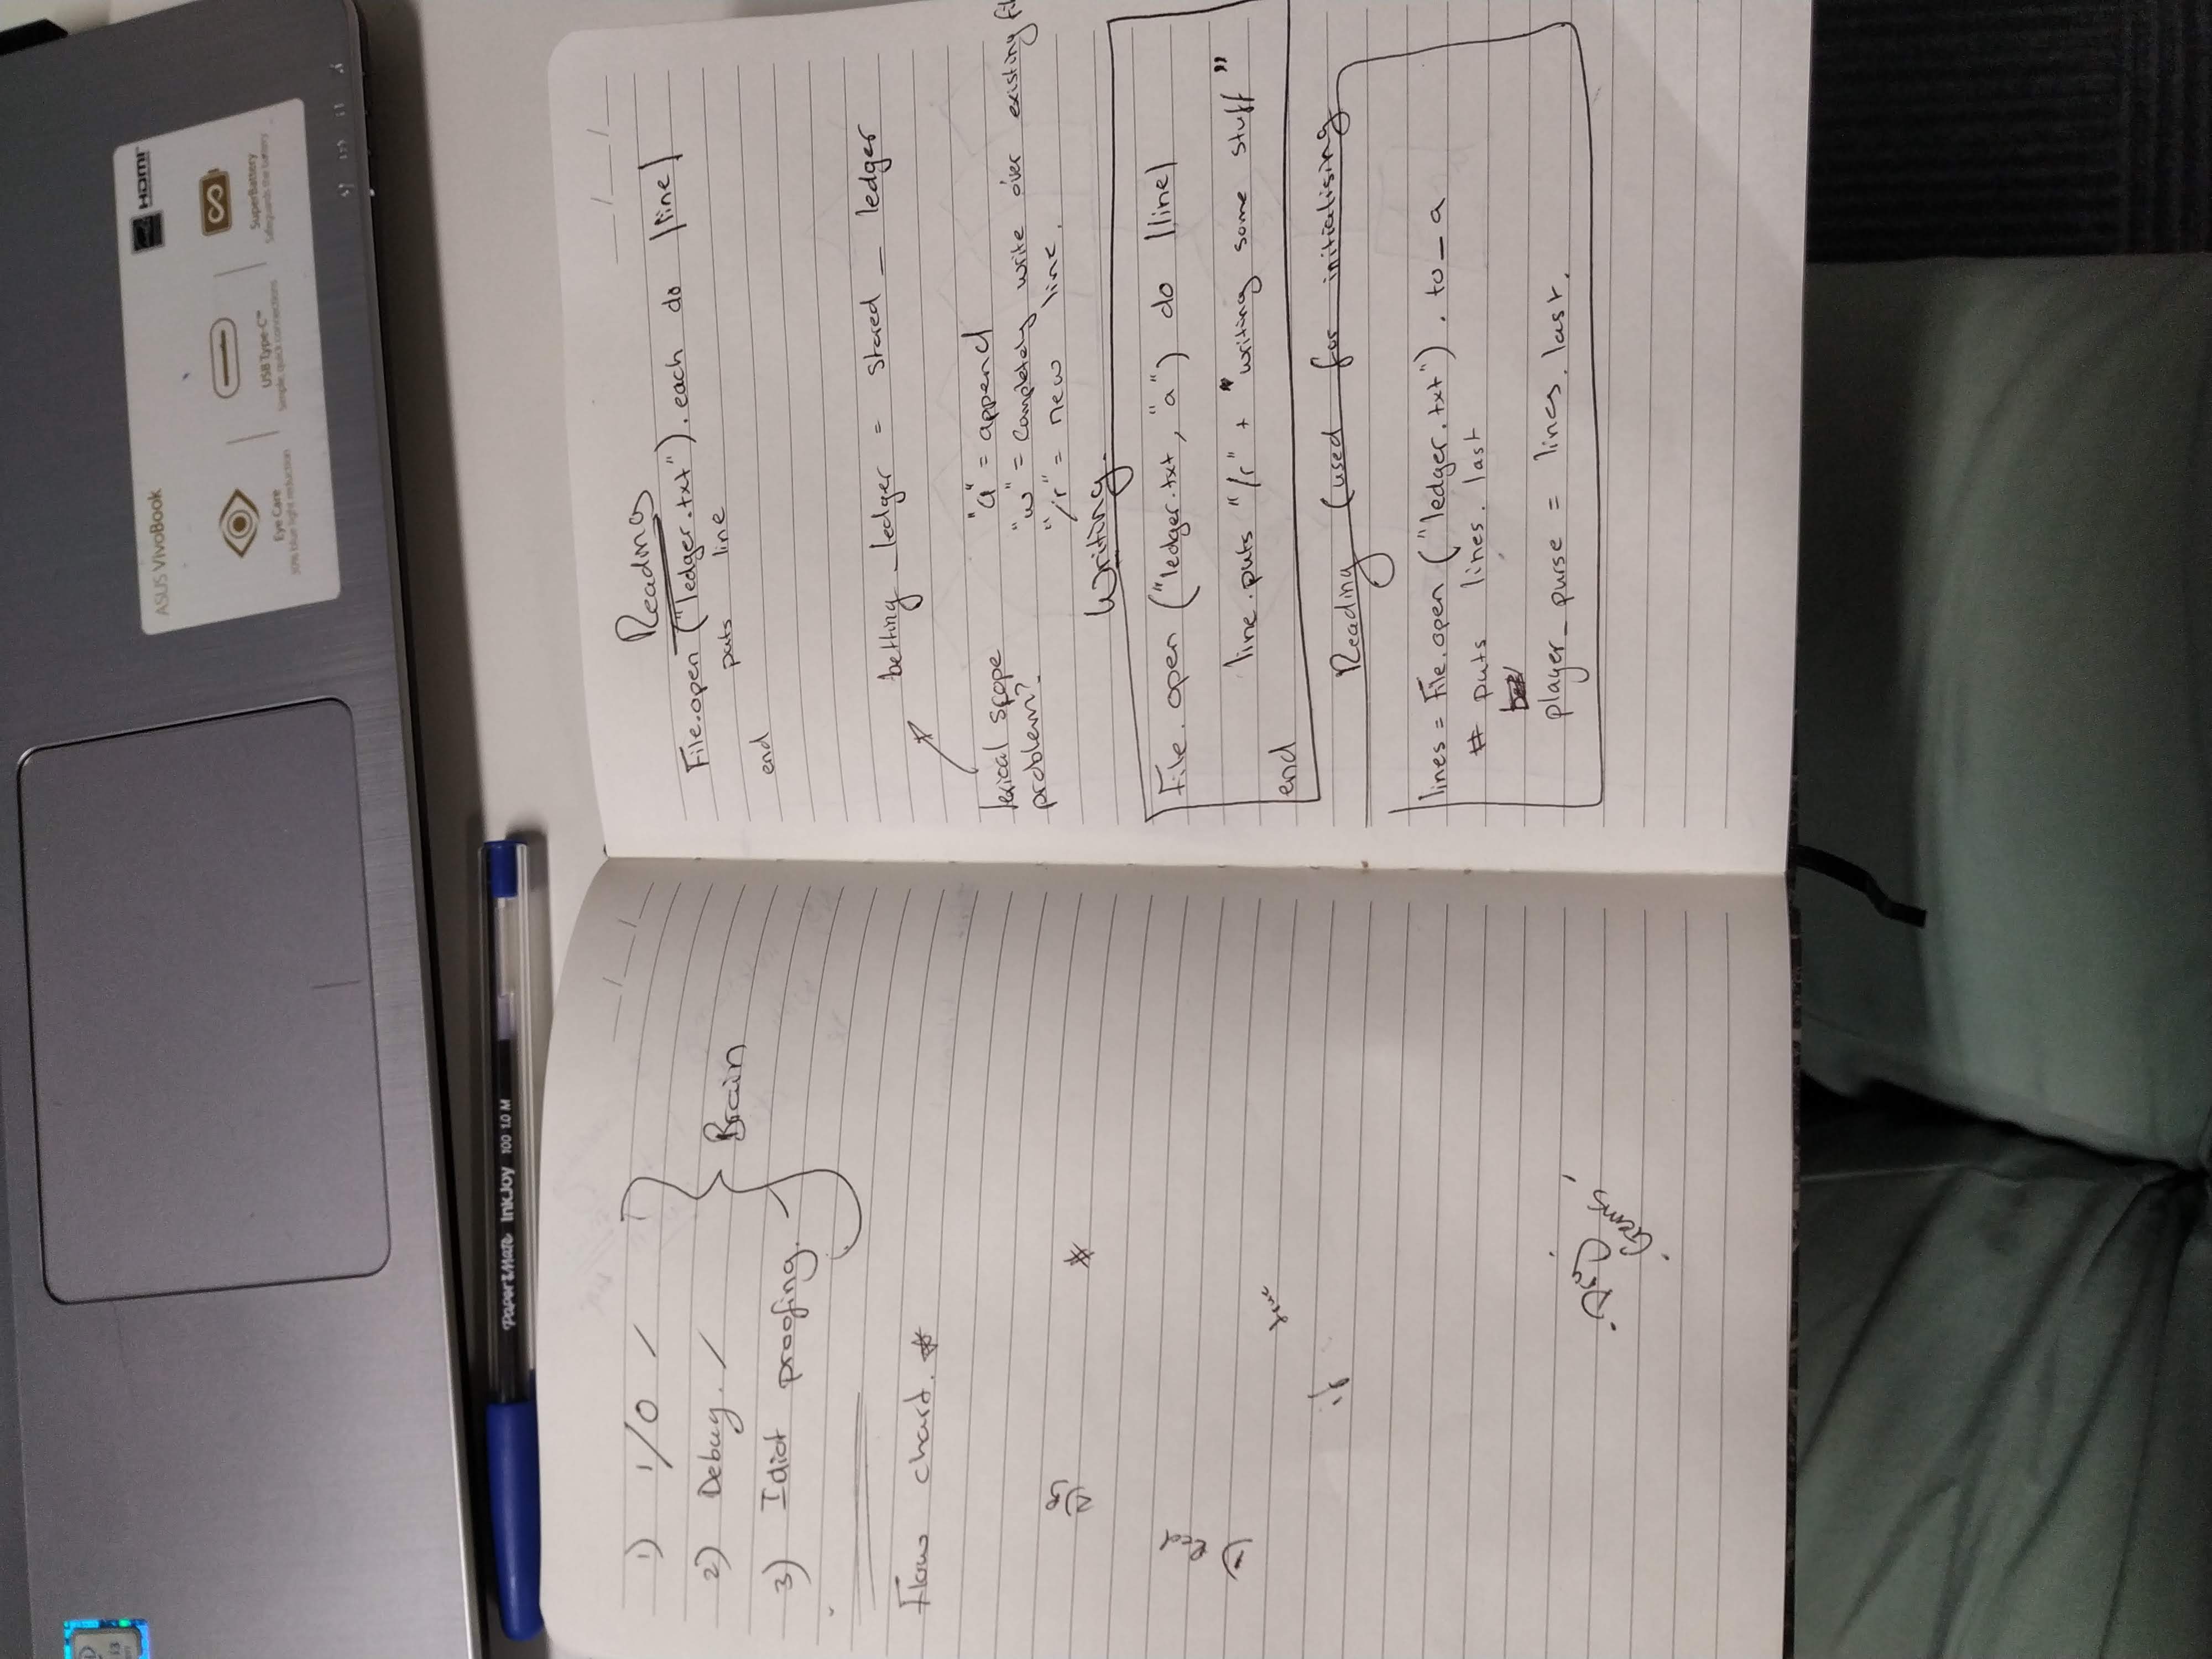 i3
ASUS VivoBook
HDMI
Eye Care
30% blue light reduction
USB Type-C™
Simple, quick connections
SuperBattery
Safeguards the battery
Paper:Mate InkJoy 100 1.0 M
1) I/O /
2) Debug. /
3) Idiot proofing.
Brain
Flow chart. *
2)
*
1) Red
true
if
- Dry.
- Gems -
__/__/__
Reading
File.open ("ledger.txt").each do |line|
puts line
end
betting_ledger = stored_ledger
lexical scope
problem?
"a" = append
"w" = completely write over existing fil
"/r" = new line.
Writing.
File.open ("ledger.txt, "a") do |line|
line.puts "/r" + "writing some stuff"
end
Reading (used for initialising
lines = File.open ("ledger.txt").to_a
# puts lines.last
player_purse = lines.last.